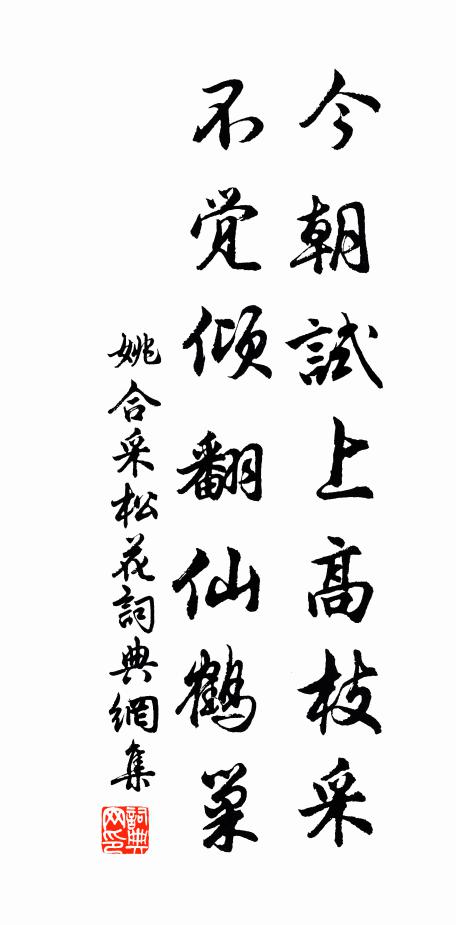 今朝試上高枝采
不覚傾翻仙鶴巢
姚合采松花詞典網集
詞典網印